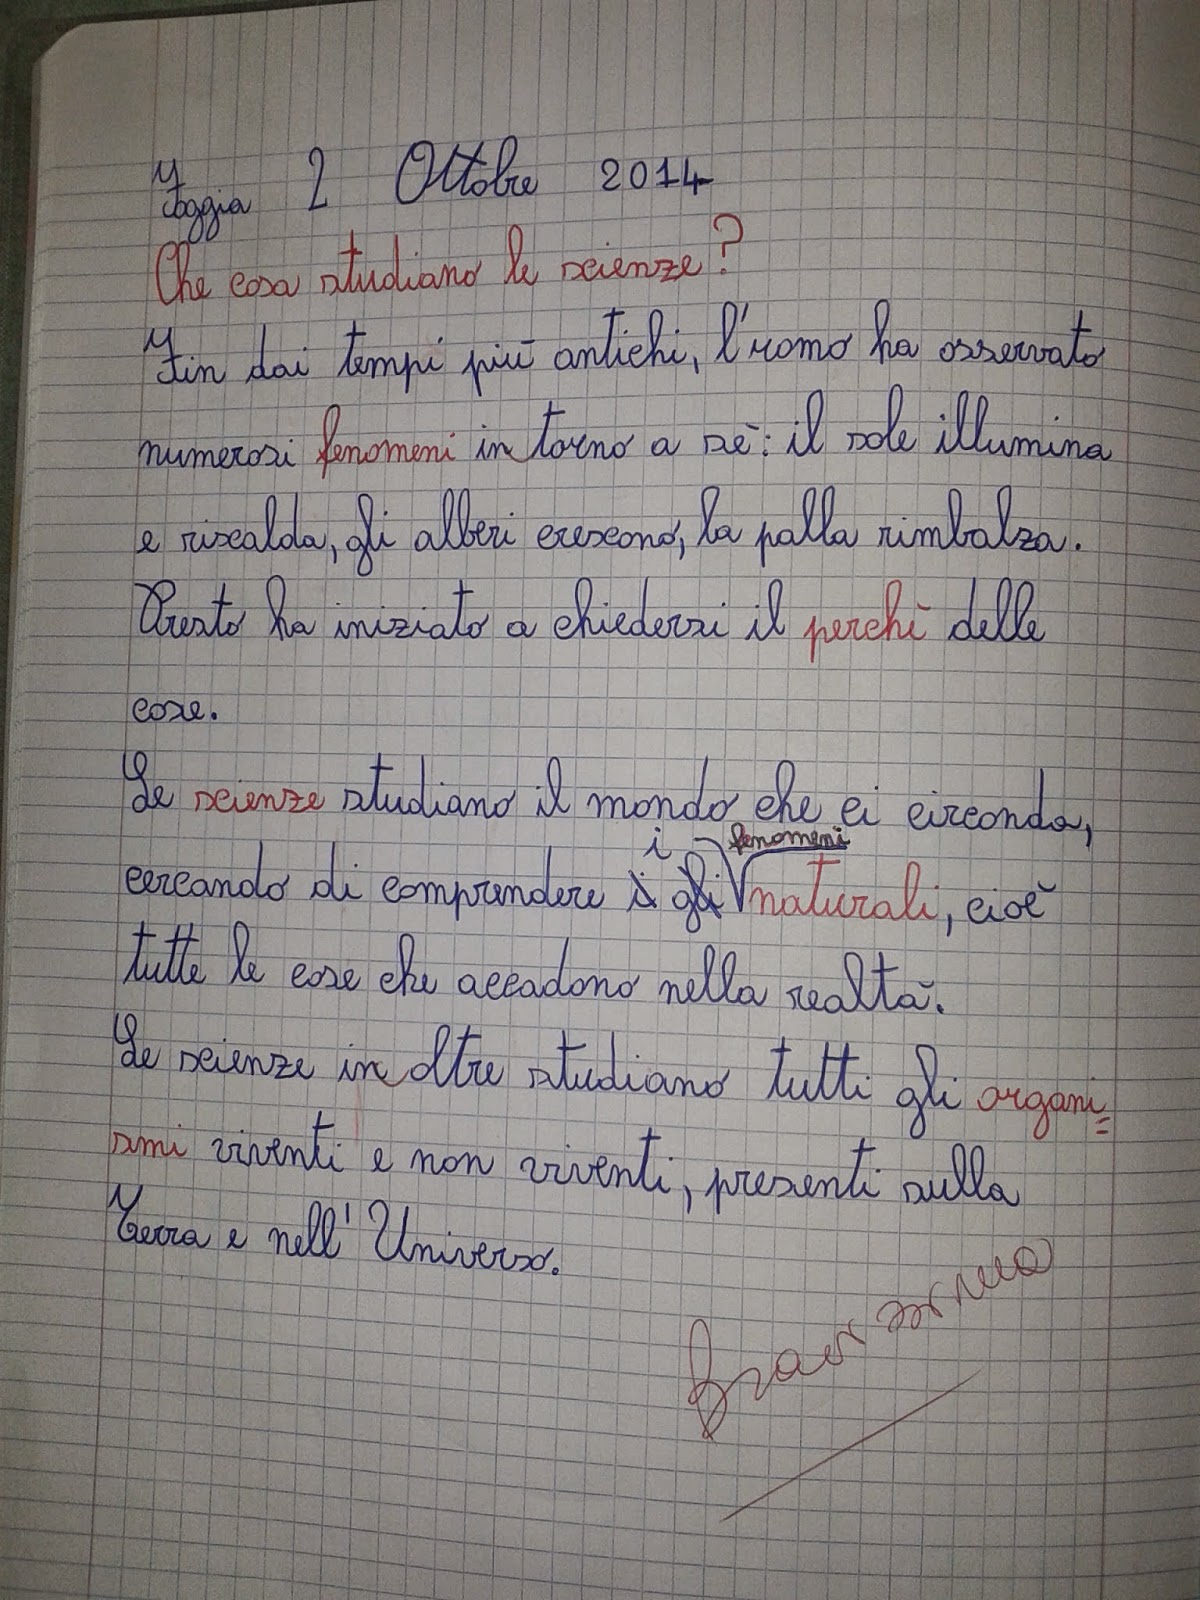 Foggia 2 Ottobre 2014
Che cosa studiano le scienze?
Fin dai tempi più antichi, l'uomo ha osservato
numerosi fenomeni in torno a sè: il sole illumina
e riscalda, gli alberi crescono, la palla rimbalza.
Presto ha iniziato a chiedersi il perchè delle
cose.
Le scienze studiano il mondo che ci circonda,
i fenomeni
cercando di comprendere i gli naturali, cioè
tutte le cose che accadono nella realtà.
Le scienze in oltre studiano tutti gli organi=
smi viventi e non viventi, presenti sulla
Terra e nell'Universo.
Bravissima